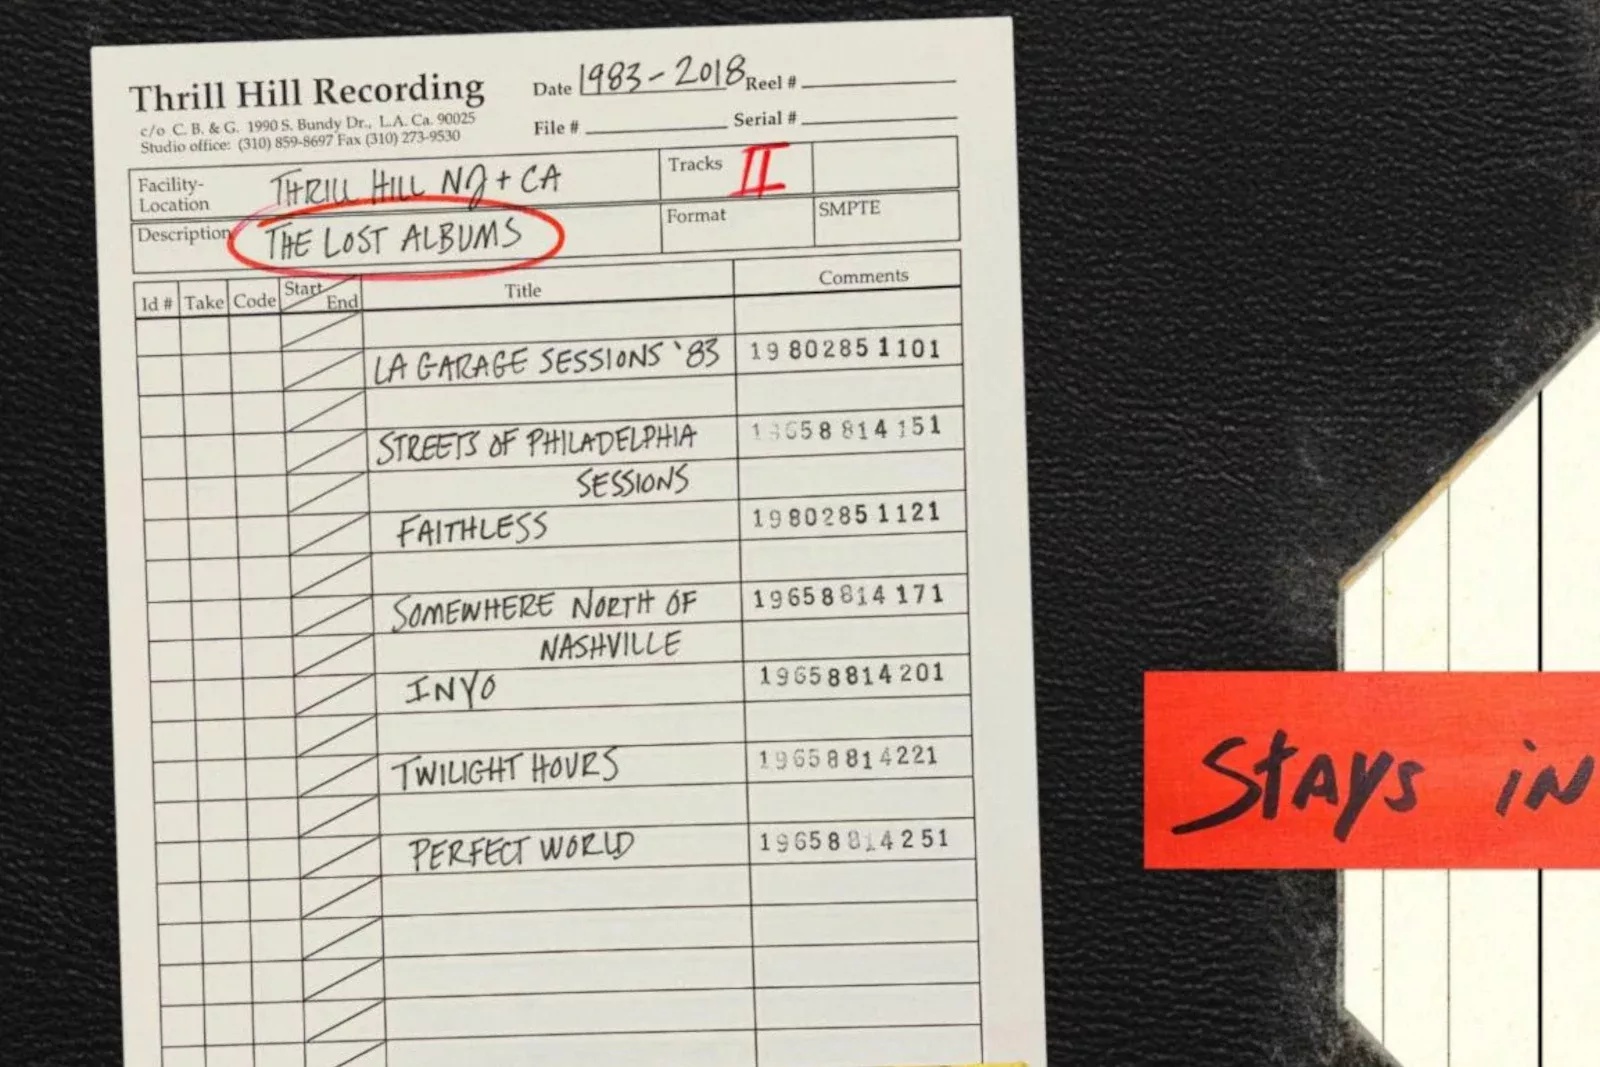 Thrill Hill Recording
c/o C. B. & G. 1990 S. Bundy Dr., L.A. Ca. 90025
Studio office: (310) 859-8697 Fax (310) 273-9530
Date 1983-2018 Reel #
File # Serial #
Facility-Location THRILL HILL NJ + CA
Tracks II
Description THE LOST ALBUMS
Format
SMPTE
Id # Take Code Start End Title Comments
LA GARAGE SESSIONS '83 19802851101
STREETS OF PHILADELPHIA 19658814151
SESSIONS
FAITHLESS 19802851121
SOMEWHERE NORTH OF 19658814171
NASHVILLE
INYO 19658814201
TWILIGHT HOURS 19658814221
PERFECT WORLD 19658814251
Stays in